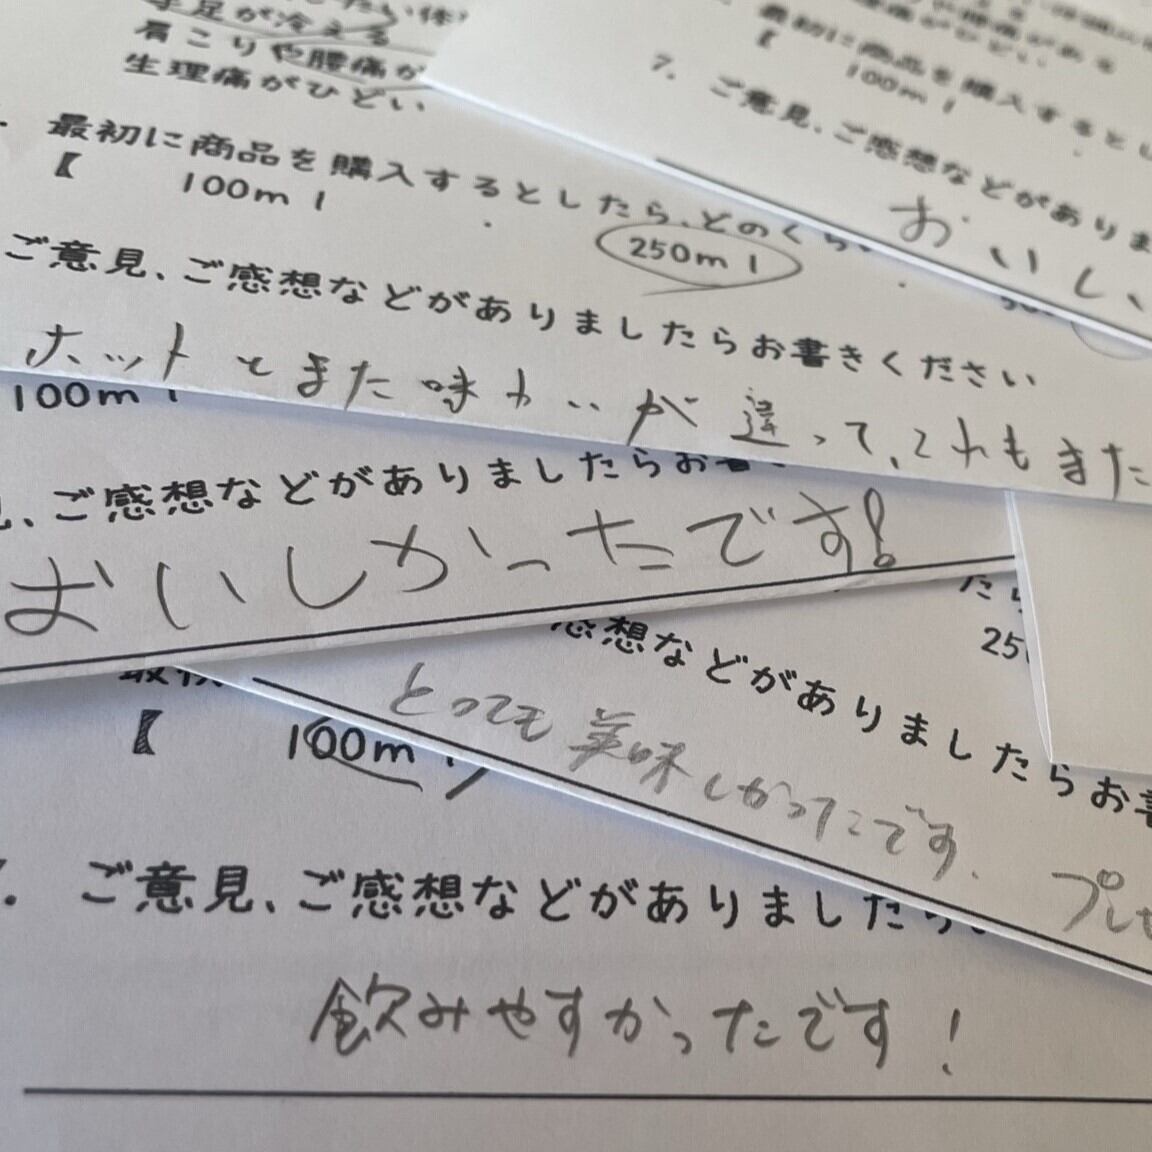 手足が冷える
肩こりや腰痛が
生理痛がひどい
最初に商品を購入するとしたら、どのくら
【 100ml 250ml
ご意見、ご感想などがありましたらお書きください
ホットとまた味わいが違って、これもまた
最初に商品を購入するとし
【 100ml
7. ご意見、ご感想などがありま
おいし
100ml
見、ご感想などがありましたらお書
おいしかったです!
たら
感想などがありましたらお書
とっても美味しかったです。 プレゼ
【 100ml
7. ご意見、ご感想などがありましたら
飲みやすかったです!